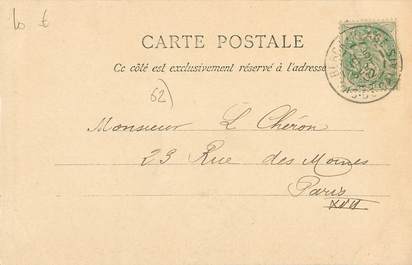 10 €
CARTE POSTALE
Ce côté est exclusivement réservé à l'adresse
62)
Monsieur L Chéron
23 Rue des Moines
Paris
XVII